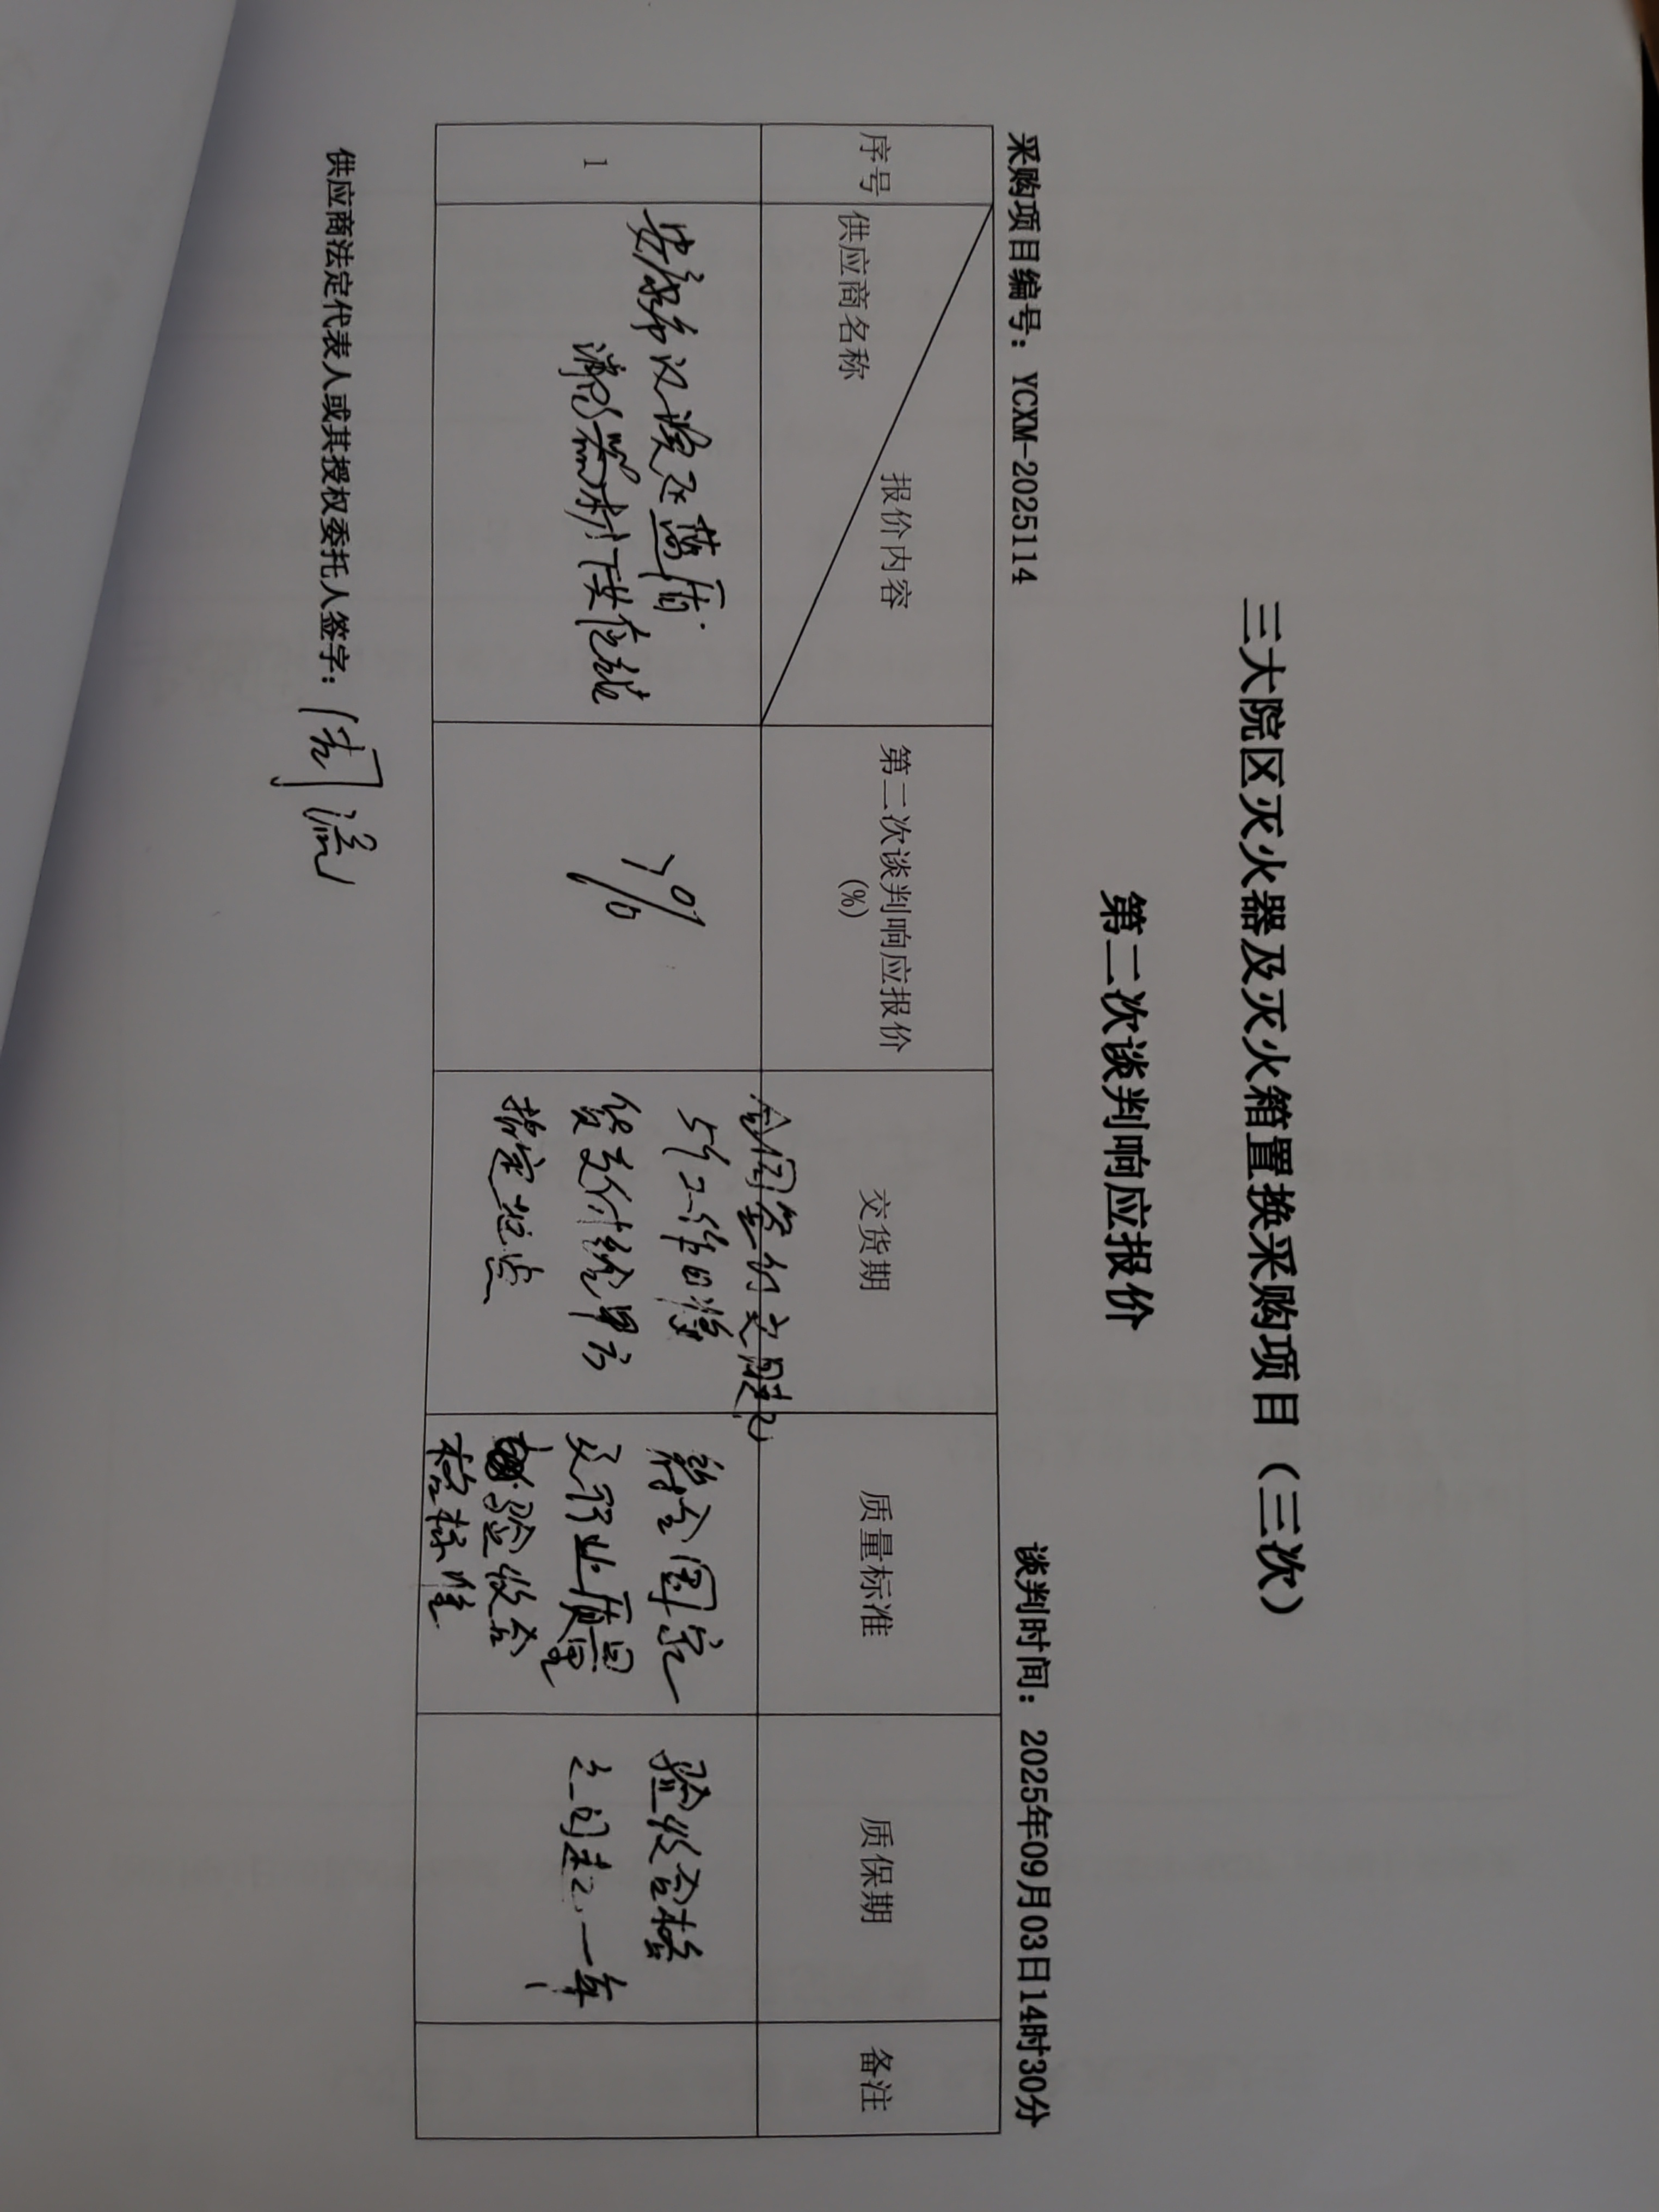 三大院区灭火器及灭火箱置换采购项目（三次）
第二次谈判响应报价
采购项目编号：YCXM-2025114
谈判时间：2025年09月03日14时30分
序号
报价内容
供应商名称
第二次谈判响应报价
(%)
交货期
质量标准
质保期
备注
1
安康市汉滨区
消防器材供应站
合同签约之日起
5个工作日将
货交付给甲方
指定地点
符合国家
及行业质量
验收合
格标准
验收合格
之日起一年
供应商法定代表人或其授权委托人签字：